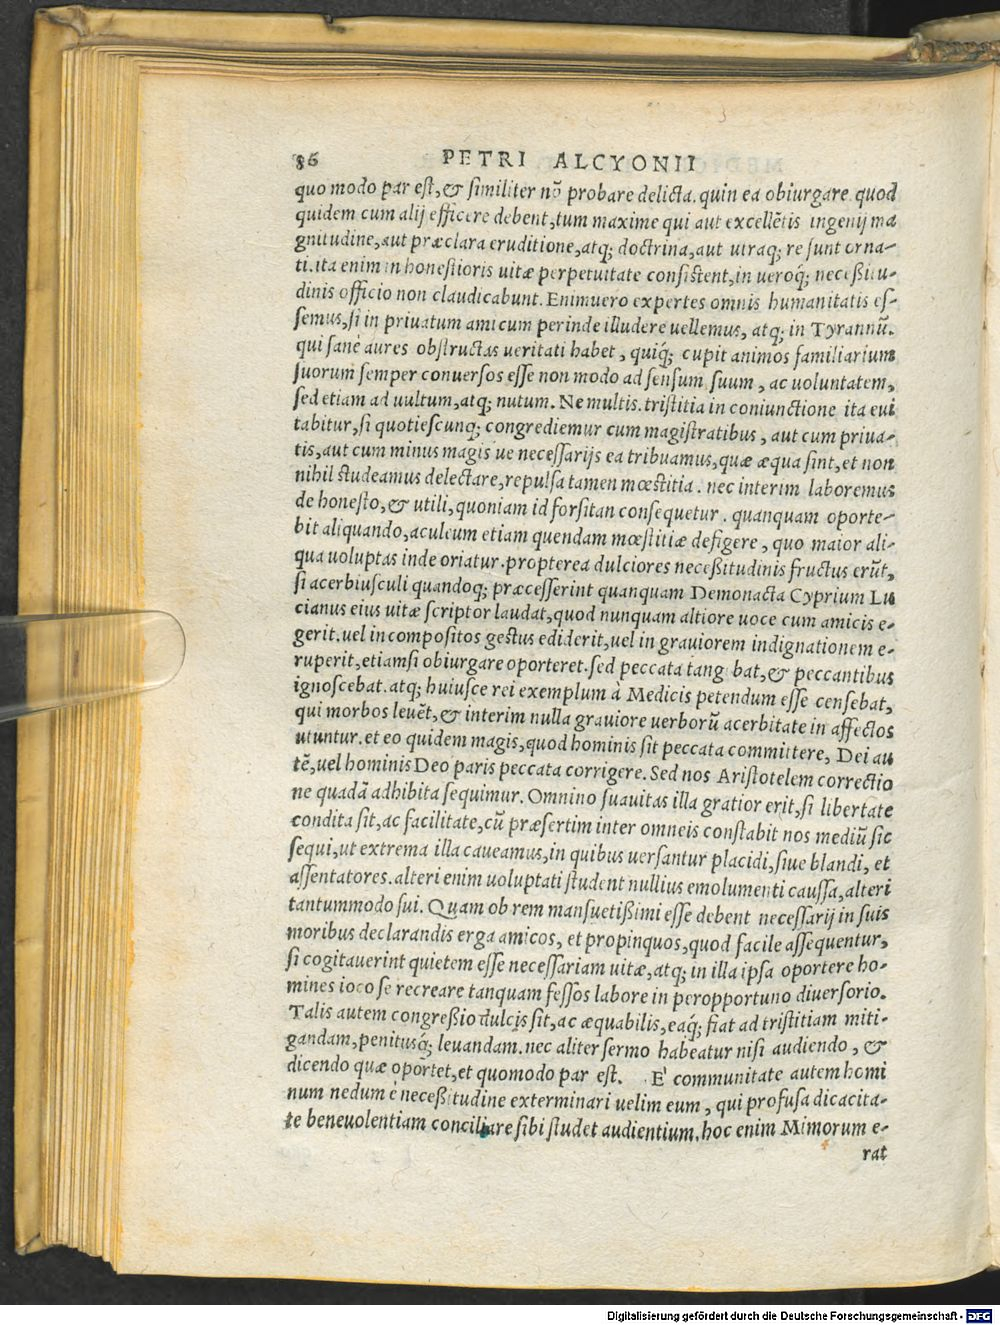 86 PETRI ALCYONII
quo modo par est, & similiter nō probare delicta. quin ea obiurgare. quod
quidem cum alij efficere debent, tum maxime qui aut excellētis ingenij ma
gnitudine, aut præclara eruditione, atq; doctrina, aut utraq; re sunt orna-
ti. ita enim in honestioris uitæ perpetuitate consistent, in ueroq́; neceßitu-
dinis officio non claudicabunt. Enimuero expertes omnis humanitatis es-
semus, si in priuatum amicum perinde illudere uellemus, atq; in Tyrannū.
qui sane aures obstructas ueritati habet, quiq́; cupit animos familiarium
suorum semper conuersos esse non modo ad sensum suum, ac uoluntatem,
sed etiam ad uultum, atq; nutum. Ne multis. tristitia in coniunctione ita eui
tabitur, si quotiescunq; congrediemur cum magistratibus, aut cum priua-
tis, aut cum minus magis ue necessarijs ea tribuamus, quæ æqua sint, et non
nihil studeamus delectare, repulsa tamen mœstitia. nec interim laboremus
de honesto, & utili, quoniam id forsitan consequetur. quanquam oporte-
bit aliquando, aculeum etiam quendam mœstitiæ defigere, quo maior ali-
qua uoluptas inde oriatur. propterea dulciores neceßitudinis fructus erūt,
si acerbiusculi quandoq; præcesserint quanquam Demonacta Cyprium Lu
cianus eius uitæ scriptor laudat, quod nunquam altiore uoce cum amicis e-
gerit. uel incompositos gestus ediderit, uel in grauiorem indignationem e-
ruperit, etiamsi obiurgare oporteret. sed peccata tang bat, & peccantibus
ignoscebat. atq; huiusce rei exemplum à Medicis petendum esse censebat,
qui morbos leuēt, & interim nulla grauiore uerborū acerbitate in affectos
utuntur. et eo quidem magis, quod hominis sit peccata committere, Dei au
tē, uel hominis Deo paris peccata corrigere. Sed nos Aristotelem correctio
ne quadā adhibita sequimur. Omnino suauitas illa gratior erit, si libertate
condita sit, ac facilitate, cū præsertim inter omneis constabit nos mediū sic
sequi, ut extrema illa caueamus, in quibus uersantur placidi, siue blandi, et
assentatores. alteri enim uoluptati student nullius emolumenti caussa, alteri
tantummodo sui. Quam ob rem mansuetißimi esse debent necessarij in suis
moribus declarandis erga amicos, et propinquos, quod facile assequentur,
si cogitauerint quietem esse necessariam uitæ, atq; in illa ipsa oportere ho-
mines ioco se recreare tanquam fessos labore in peropportuno diuersorio.
Talis autem congreßio dulcis sit, ac æquabilis, eaq́; fiat ad tristitiam miti-
gandam, penitusq́; leuandam. nec aliter sermo habeatur nisi audiendo, &
dicendo quæ oportet, et quomodo par est. E' communitate autem homi
num nedum è neceßitudine exterminari uelim eum, qui profusa dicacita-
te beneuolentiam conciliare sibi studet audientium. hoc enim Mimorum e-
rat
Digitalisierung gefördert durch die Deutsche Forschungsgemeinschaft - DFG